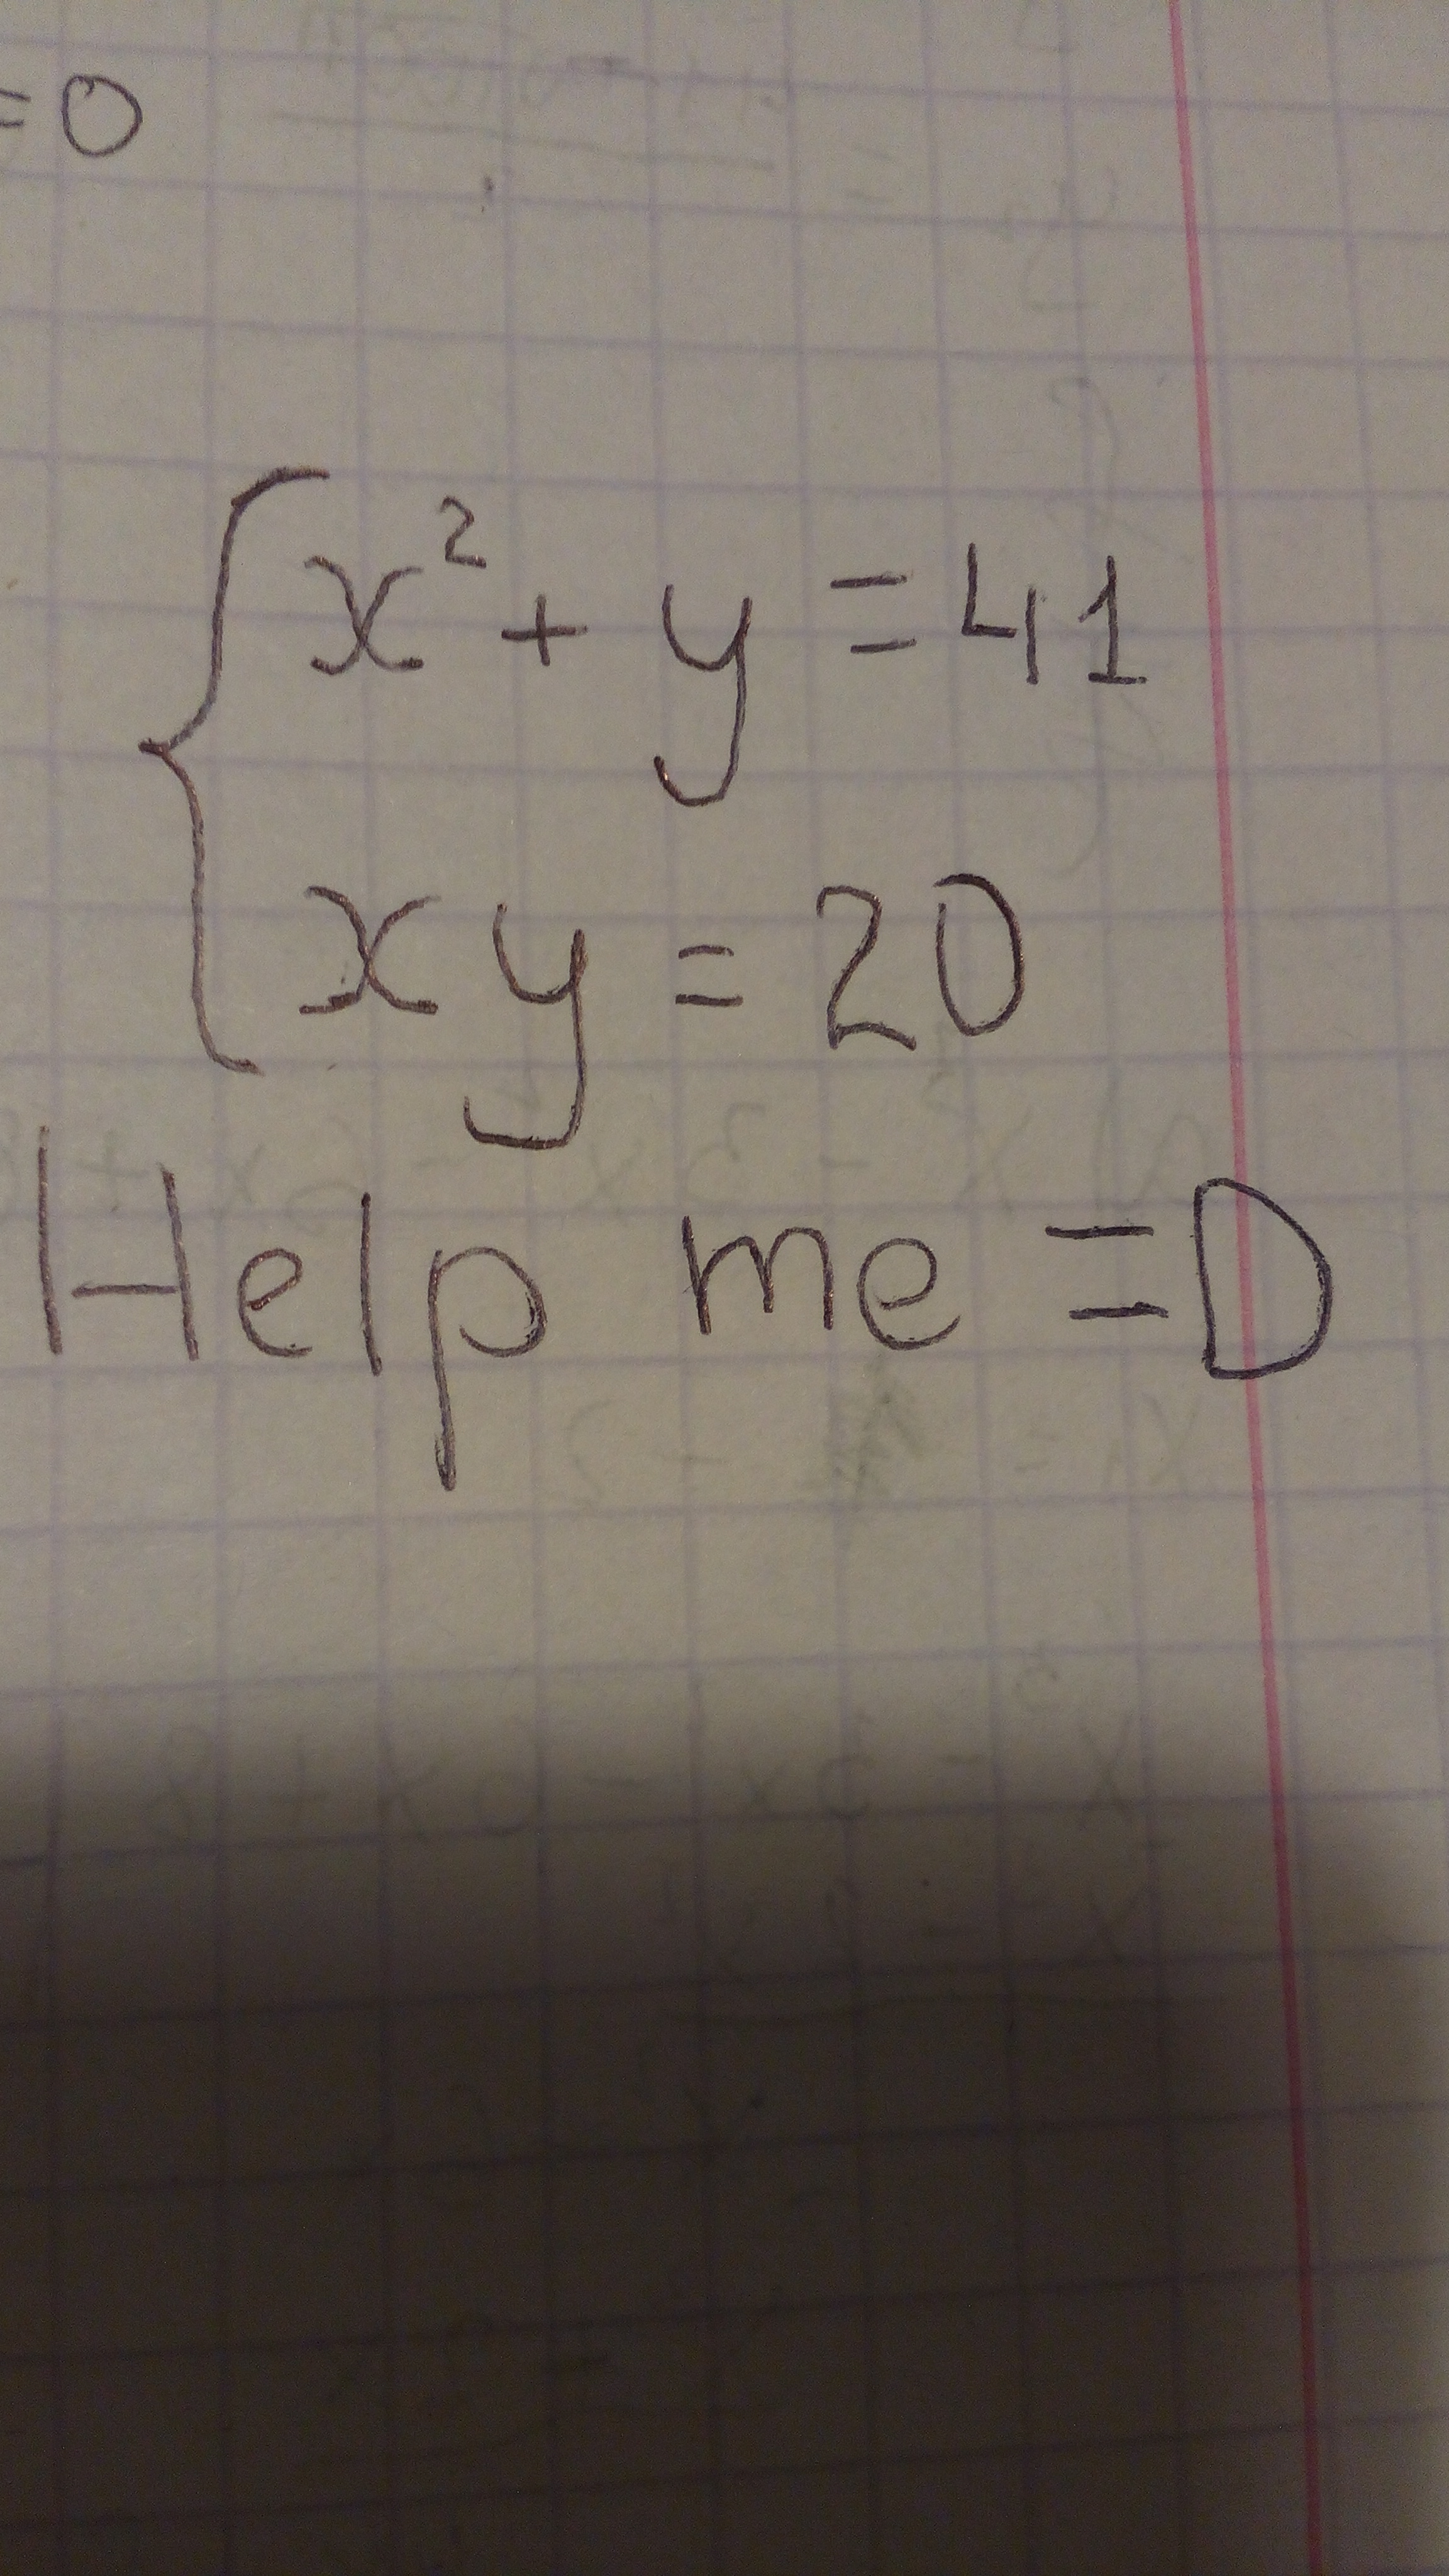 =0
x²+y=41
xy=20
Help me =D